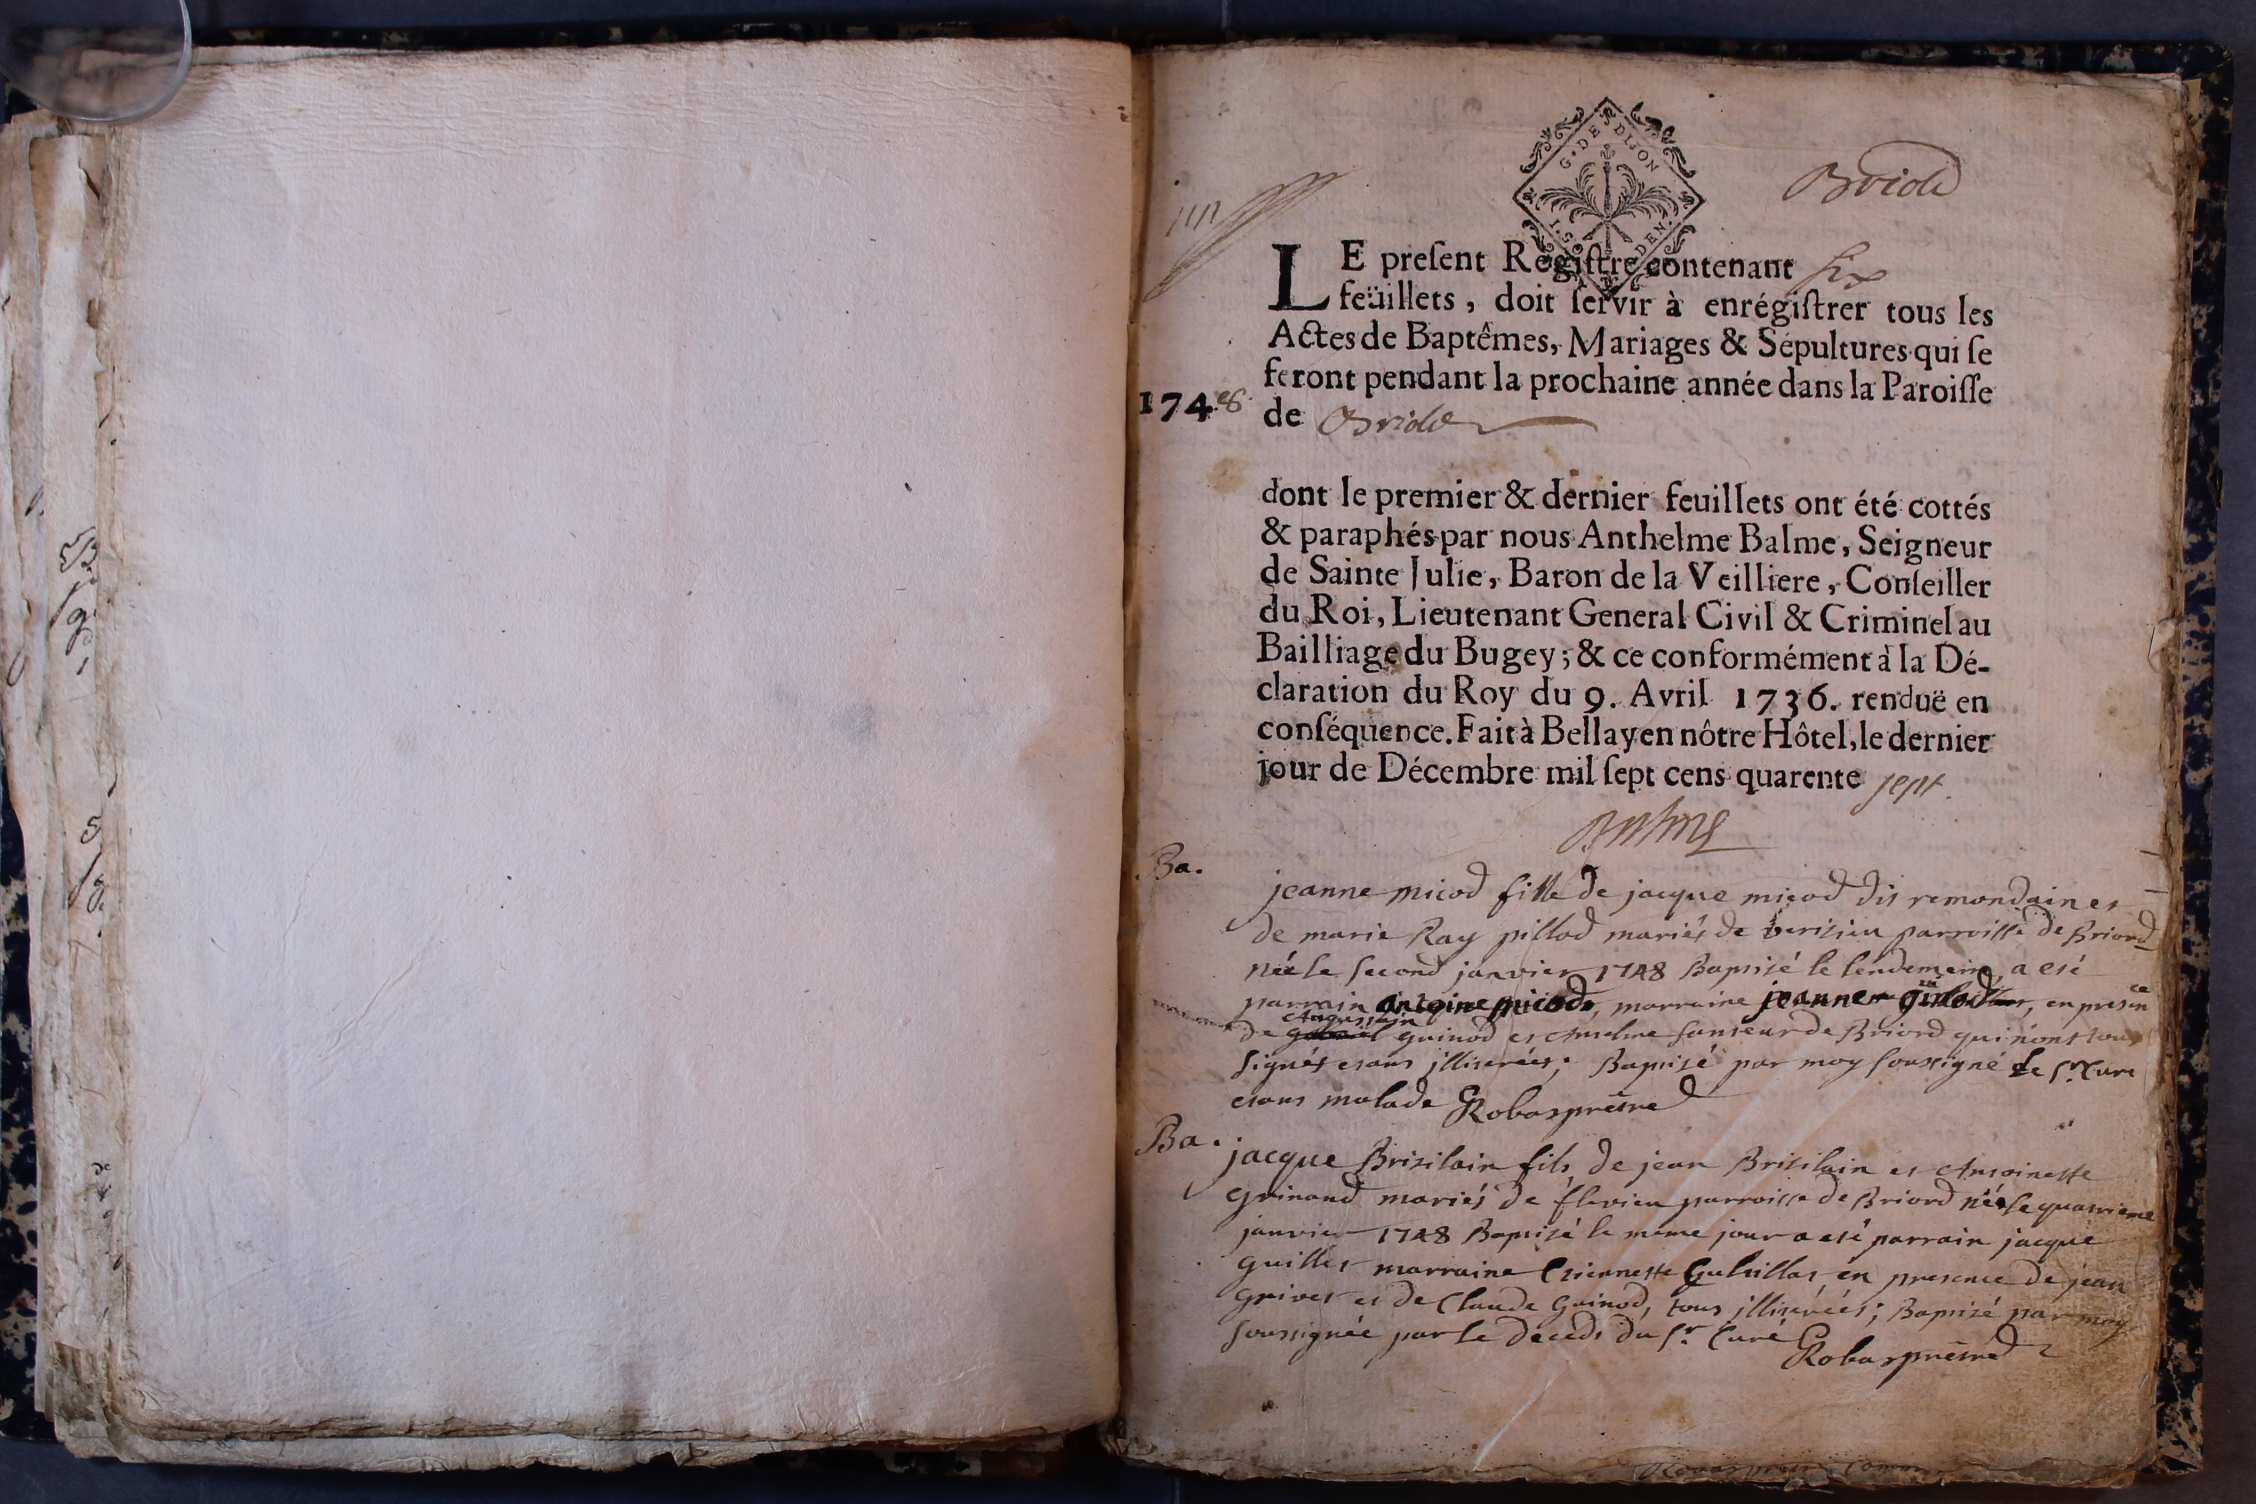 G. DE DIJON
I. S. DEN.
LE preſent Regiſtre contenant ſix
feüillets, doit ſervir à enrégiſtrer tous les
Actes de Baptêmes, Mariages & Sépultures qui ſe
feront pendant la prochaine année dans la Paroiſſe
1748.
de Briord
dont le premier & dernier feuillets ont été cottés
& paraphés par nous Anthelme Balme, Seigneur
de Sainte Julie, Baron de la Veilliere, Conſeiller
du Roi, Lieutenant General Civil & Criminel au
Bailliage du Bugey; & ce conformément à la Dé-
claration du Roy du 9. Avril 1736. renduë en
conſéquence. Fait à Bellay en nôtre Hôtel, le dernier
jour de Décembre mil ſept cens quarente sept.
Balme
Ba.
jeanne micod fille de jacque micod dit remondain et
de marie Ray pillod mariés de verisieu parroisse de Briord
née le second janvier 1748 Baptisé le lendemein, a eté
parrain antoine micod, marraine jeanne, en presence
de Augustain guinod et Anselme de Briord qui n'ont tous
signés etans illiterées; Baptisé par moy soussigné le Sr. Curé
etans malade Robat prêtre
Ba.
jacque Brisilain fils de jean Brisilain et Antoinette
grinand mariés de flevieu parroisse de Briord née le quatrieme
janvier 1748 Baptisé le même jour a eté parrain jacque
guillet marraine Etiennette en presence de jean
grivet et de Claude Guinod, tous illiterées; Baptisé par moy
soussignée par le deceds du Sr. Curé Robat prêtre